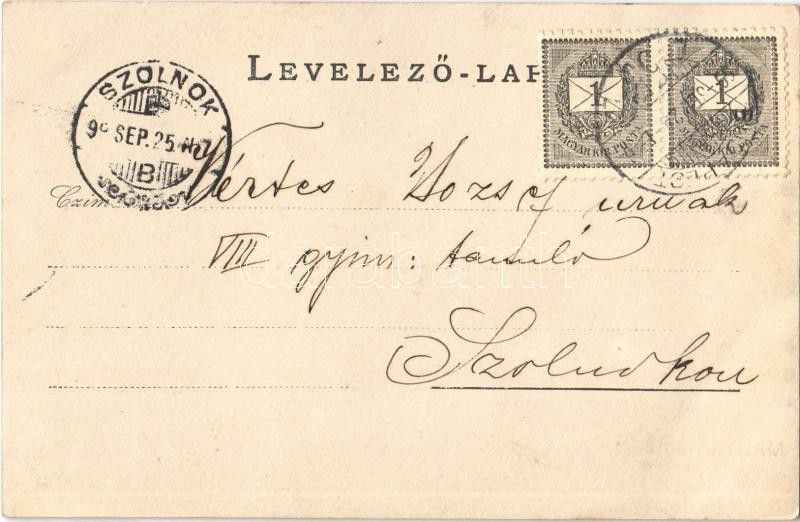 LEVELEZŐ-LAP
SZOLNOK
SEP. 25
B
1
MAGYAR KIR. POSTA
1
MAGYAR KIR. POSTA
Czim
Vértes József urnak
VIII gymn: tanuló
Szolnokon
darabanth